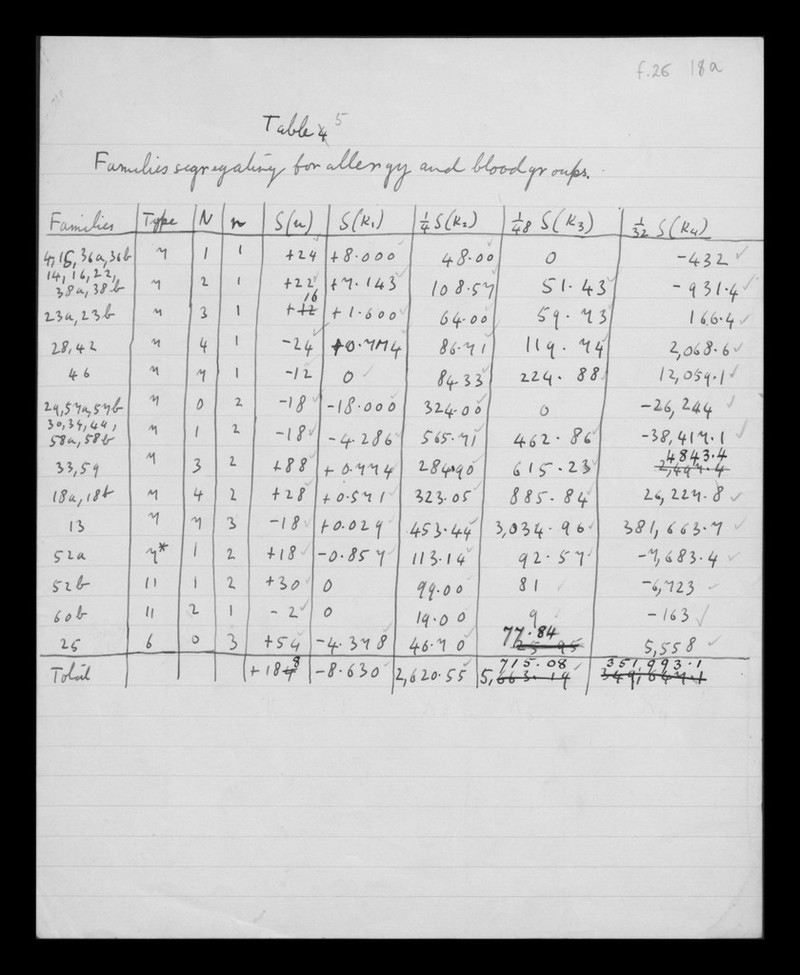 f.26 18a
Table 4 5
Families segregating for allergy and blood groups.
Families Type N n S(u) S(k₁) ¼S(k₂) 1/48 S(k₃) 1/32 S(k₄)
4,15,36a,36b 7 1 1 +24 +8.000 48.00 0 -432
14,16,22,
38a,38b 7 2 1 +22 +7.143 108.57 51.43 -931.4
23a,23b 7 3 1 +12 16 +1.600 64.00 59.73 166.4
28,42 7 4 1 -24 +0.774 86.71 119.74 2,068.6
46 7 7 1 -12 0 84.33 224.88 12,059.1
29,57a,57b 7 0 2 -18 -18.000 324.00 0 -26,244
30,34,44,
58a,58b 7 1 2 -18 -4.286 565.71 462.86 -38,417.1
33,59 7 3 2 +88 +0.774 284.90 615.23 4843.4
18a,18b 7 4 2 +28 +0.571 323.05 885.84 26,227.8
13 7 7 3 -18 +0.029 453.44 3,034.96 381,663.7
52a 7* 1 2 +18 -0.857 113.14 92.57 -7,683.4
52b 11 1 2 +30 0 99.00 81 -6,723
60b 11 2 1 -2 0 19.00 9 -163
25 6 0 3 +54 -4.378 46.70 25.95 77.84 5,558
Total +188 -8.630 2,620.55 5,663.19 715.08 351,993.1